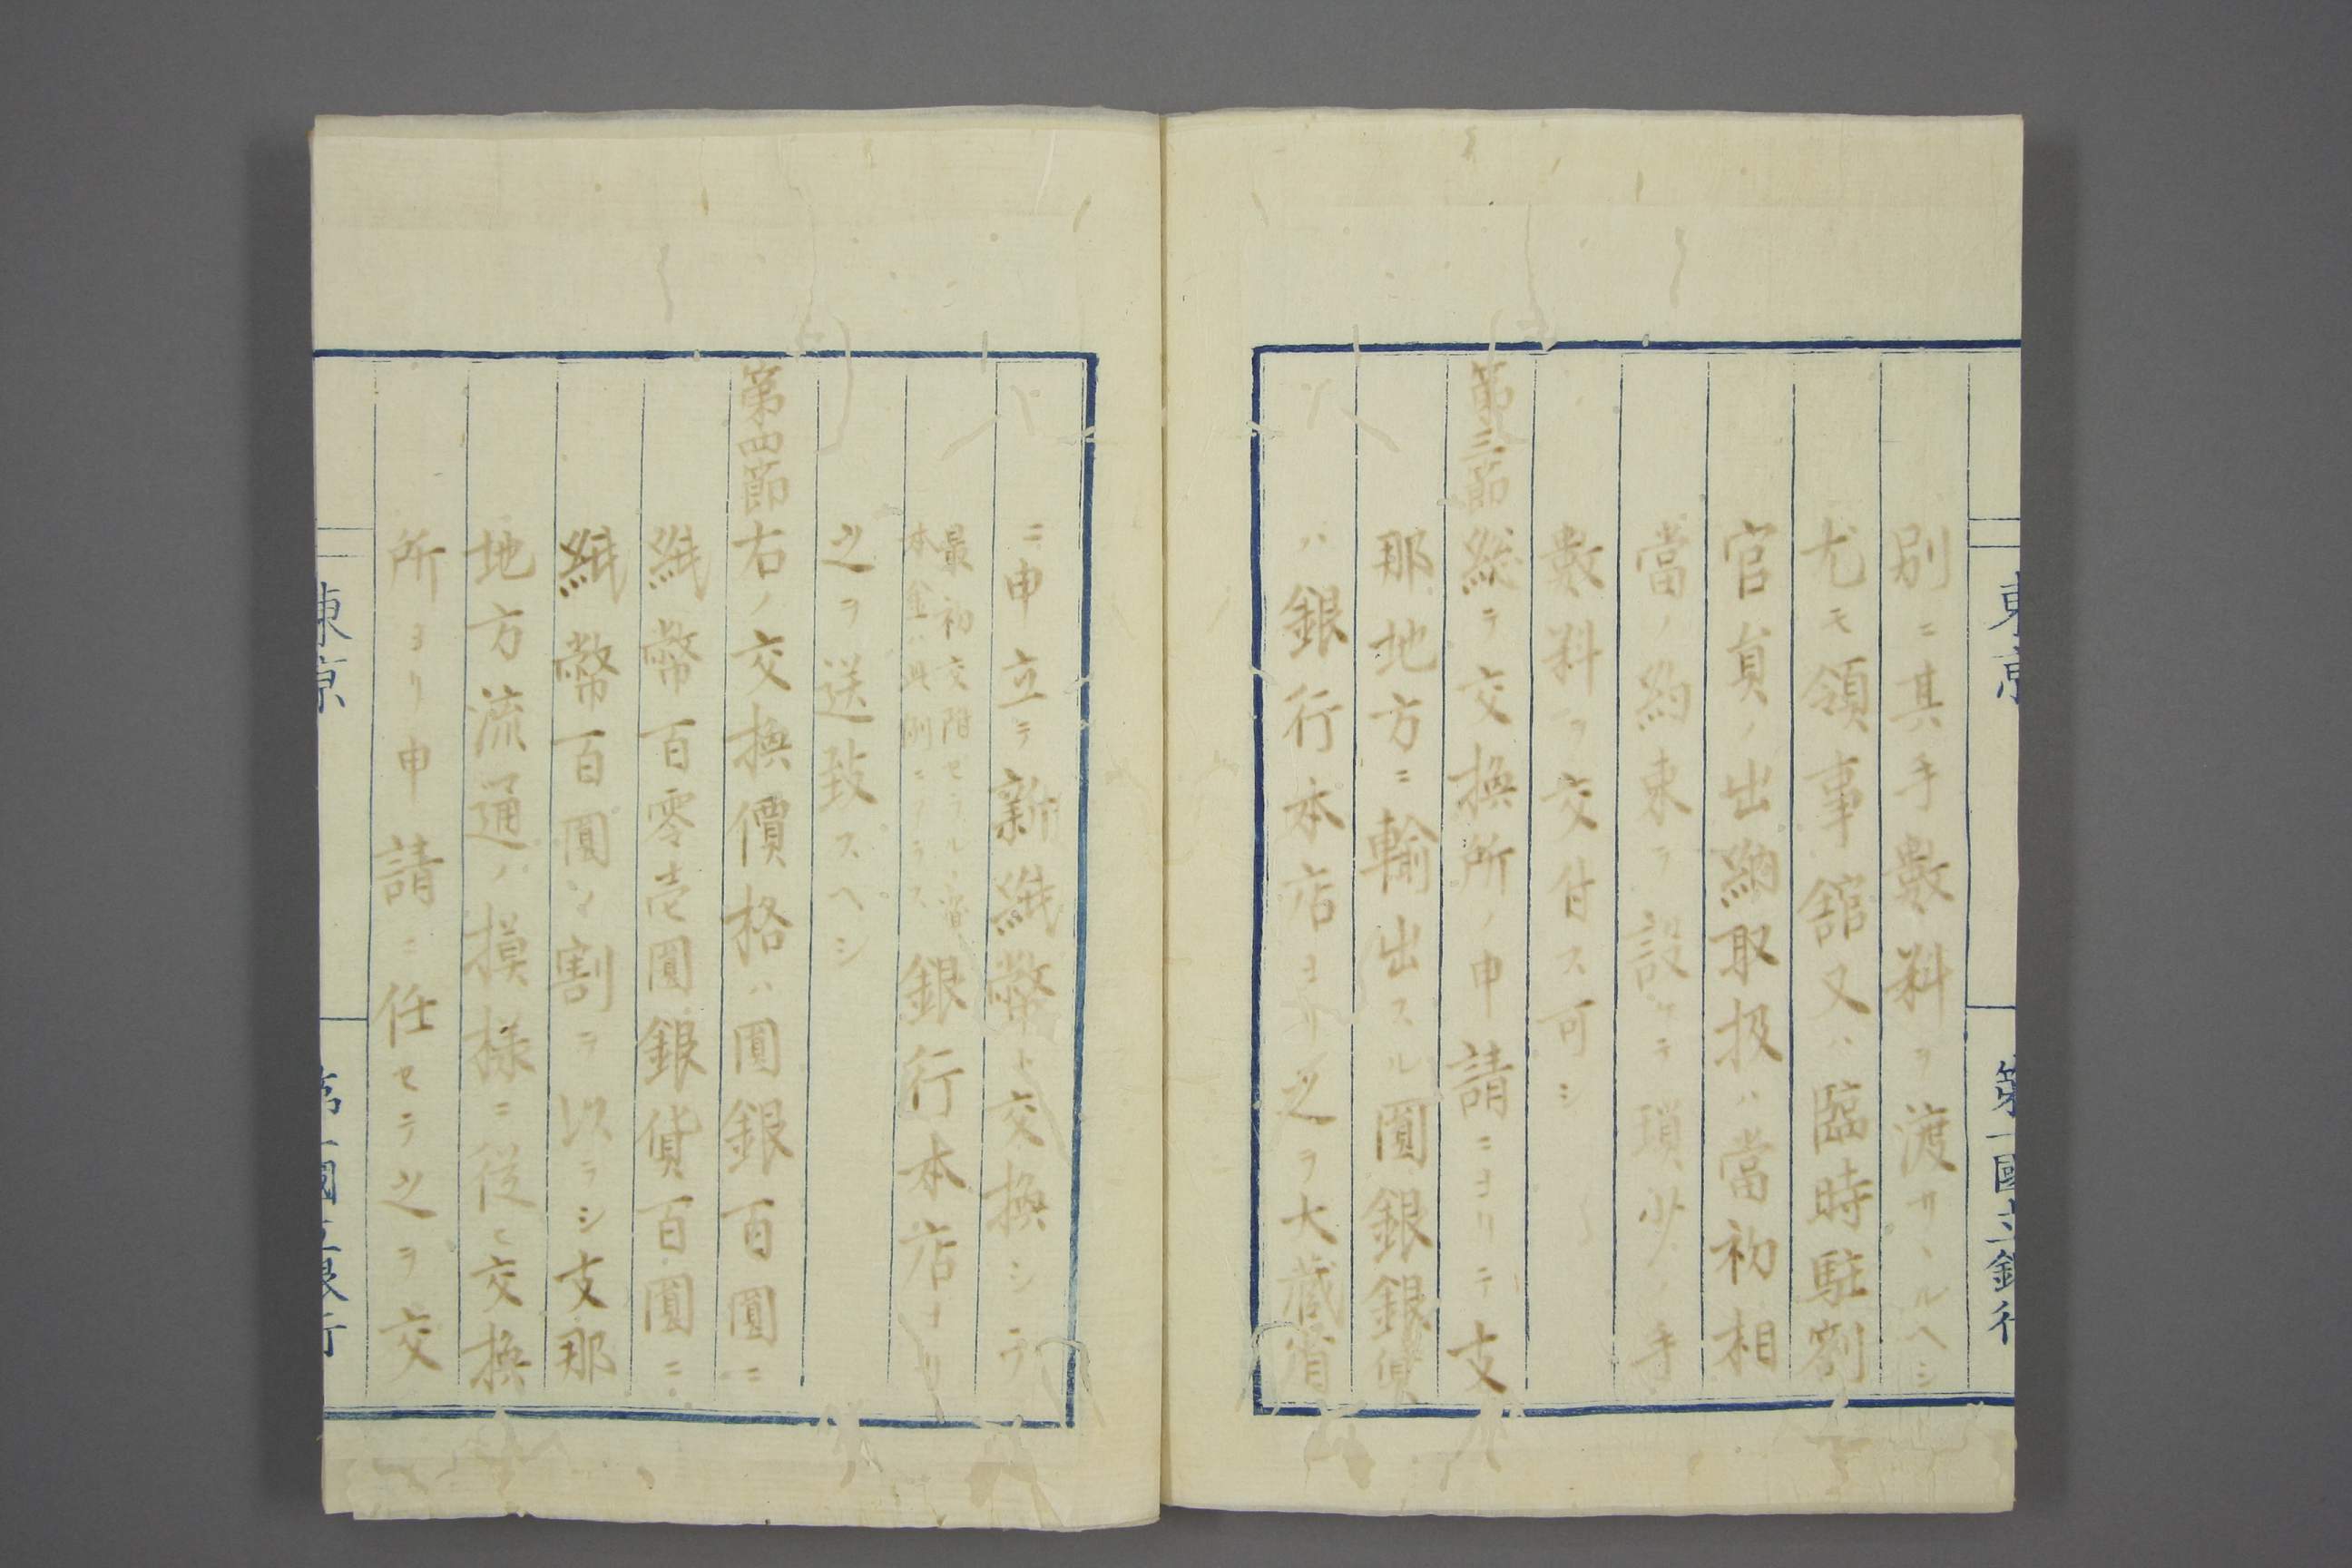 東京 第一國立銀行
別ニ其手數料ヲ渡サヽルヘシ
尤モ領事舘又ハ臨時駐劄
官員ノ出納取扱ハ當初相
當ノ約束ヲ設ケテ瑣少ノ手
數料ヲ交付ス可シ
第三節 総テ交換所ノ申請ニヨリテ支
那地方ニ輸出スル圓銀銀貨
ハ銀行本店ヨリ之ヲ大蔵省
ニ申立テ新紙幣ト交換シテ
最初交附セラルヽ
本金ハ此例ニアラス 銀行本店ヨリ
之ヲ送致スヘシ
第四節 右ノ交換價格ハ圓銀百圓ニ
紙幣百零壱圓銀貨百圓ニ
紙幣百圓ノ割ヲ以テシ支那
地方流通ノ摸様ニ従ヒ交換
所ヨリ申請ニ任セテ之ヲ交
東京 第一國立銀行